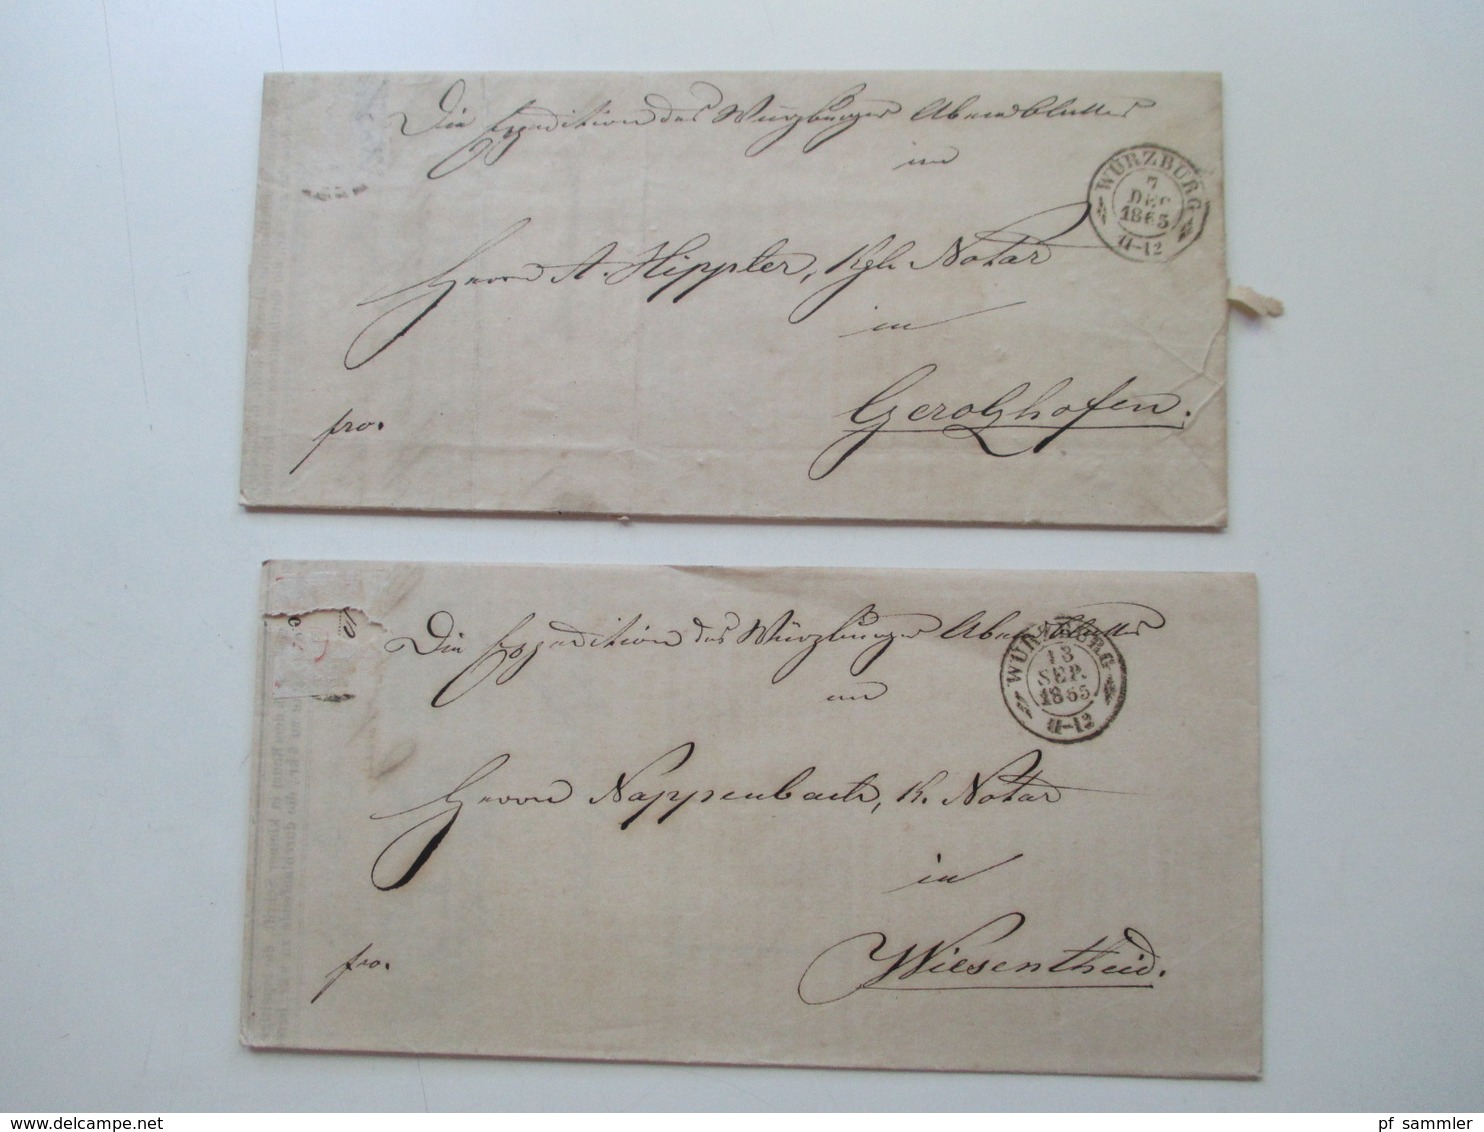 Die Expedition des Würzburger Abendblattes
an
WÜRZBURG
7
DEC
1865
11-12
Herrn A. Hippler, Kgl. Notar
in
Gerolzhofen.
fro.
Die Expedition des Würzburger Abendblattes
an
WÜRZBURG
13
SEP.
1865
11-12
Herrn Nappenbach, K. Notar
in
Wiesentheid.
fro.
www.delcampe.net
pf_sammler